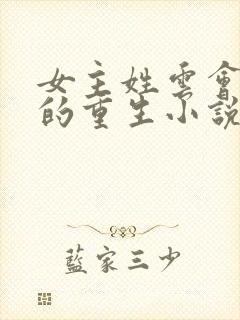 女主姓雲會
的重生小說
藍家三少